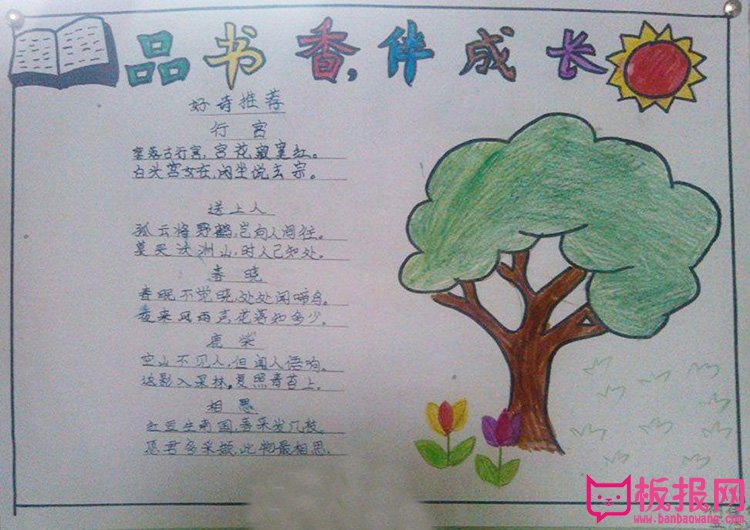 品书香,伴成长
好诗推荐
行宫
寥落古行宫,宫花寂寞红。
白头宫女在,闲坐说玄宗。
送上人
孤云将野鹤,岂向人间住。
莫买沃洲山,时人已知处。
春晓
春眠不觉晓,处处闻啼鸟。
夜来风雨声,花落知多少。
鹿柴
空山不见人,但闻人语响。
返影入深林,复照青苔上。
相思
红豆生南国,春来发几枝。
愿君多采撷,此物最相思。
板报网
www.banbaowang.com